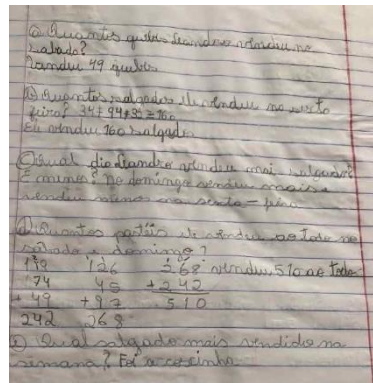 a) Quantos quibes Leandro vendeu no
sabado?
Vandeu 49 quibes
b) Quantos salgados ele vendeu na sexta
feira? 34+94+32=160
Ele vendeu 160 salgados
c) Qual dia Leandro vendeu mais salgados?
E menos? No domingo vendeu mais e
vendeu menos na sexta-feira
d) Quantos pastéis ele vendeu ao todo no
sábado e domingo?
119 126 268 vendeu 510 ao todo
74 45 + 242
+ 49 + 97 510
242 268
e) Qual salgado mais vendido na
semana? Foi a coxinha